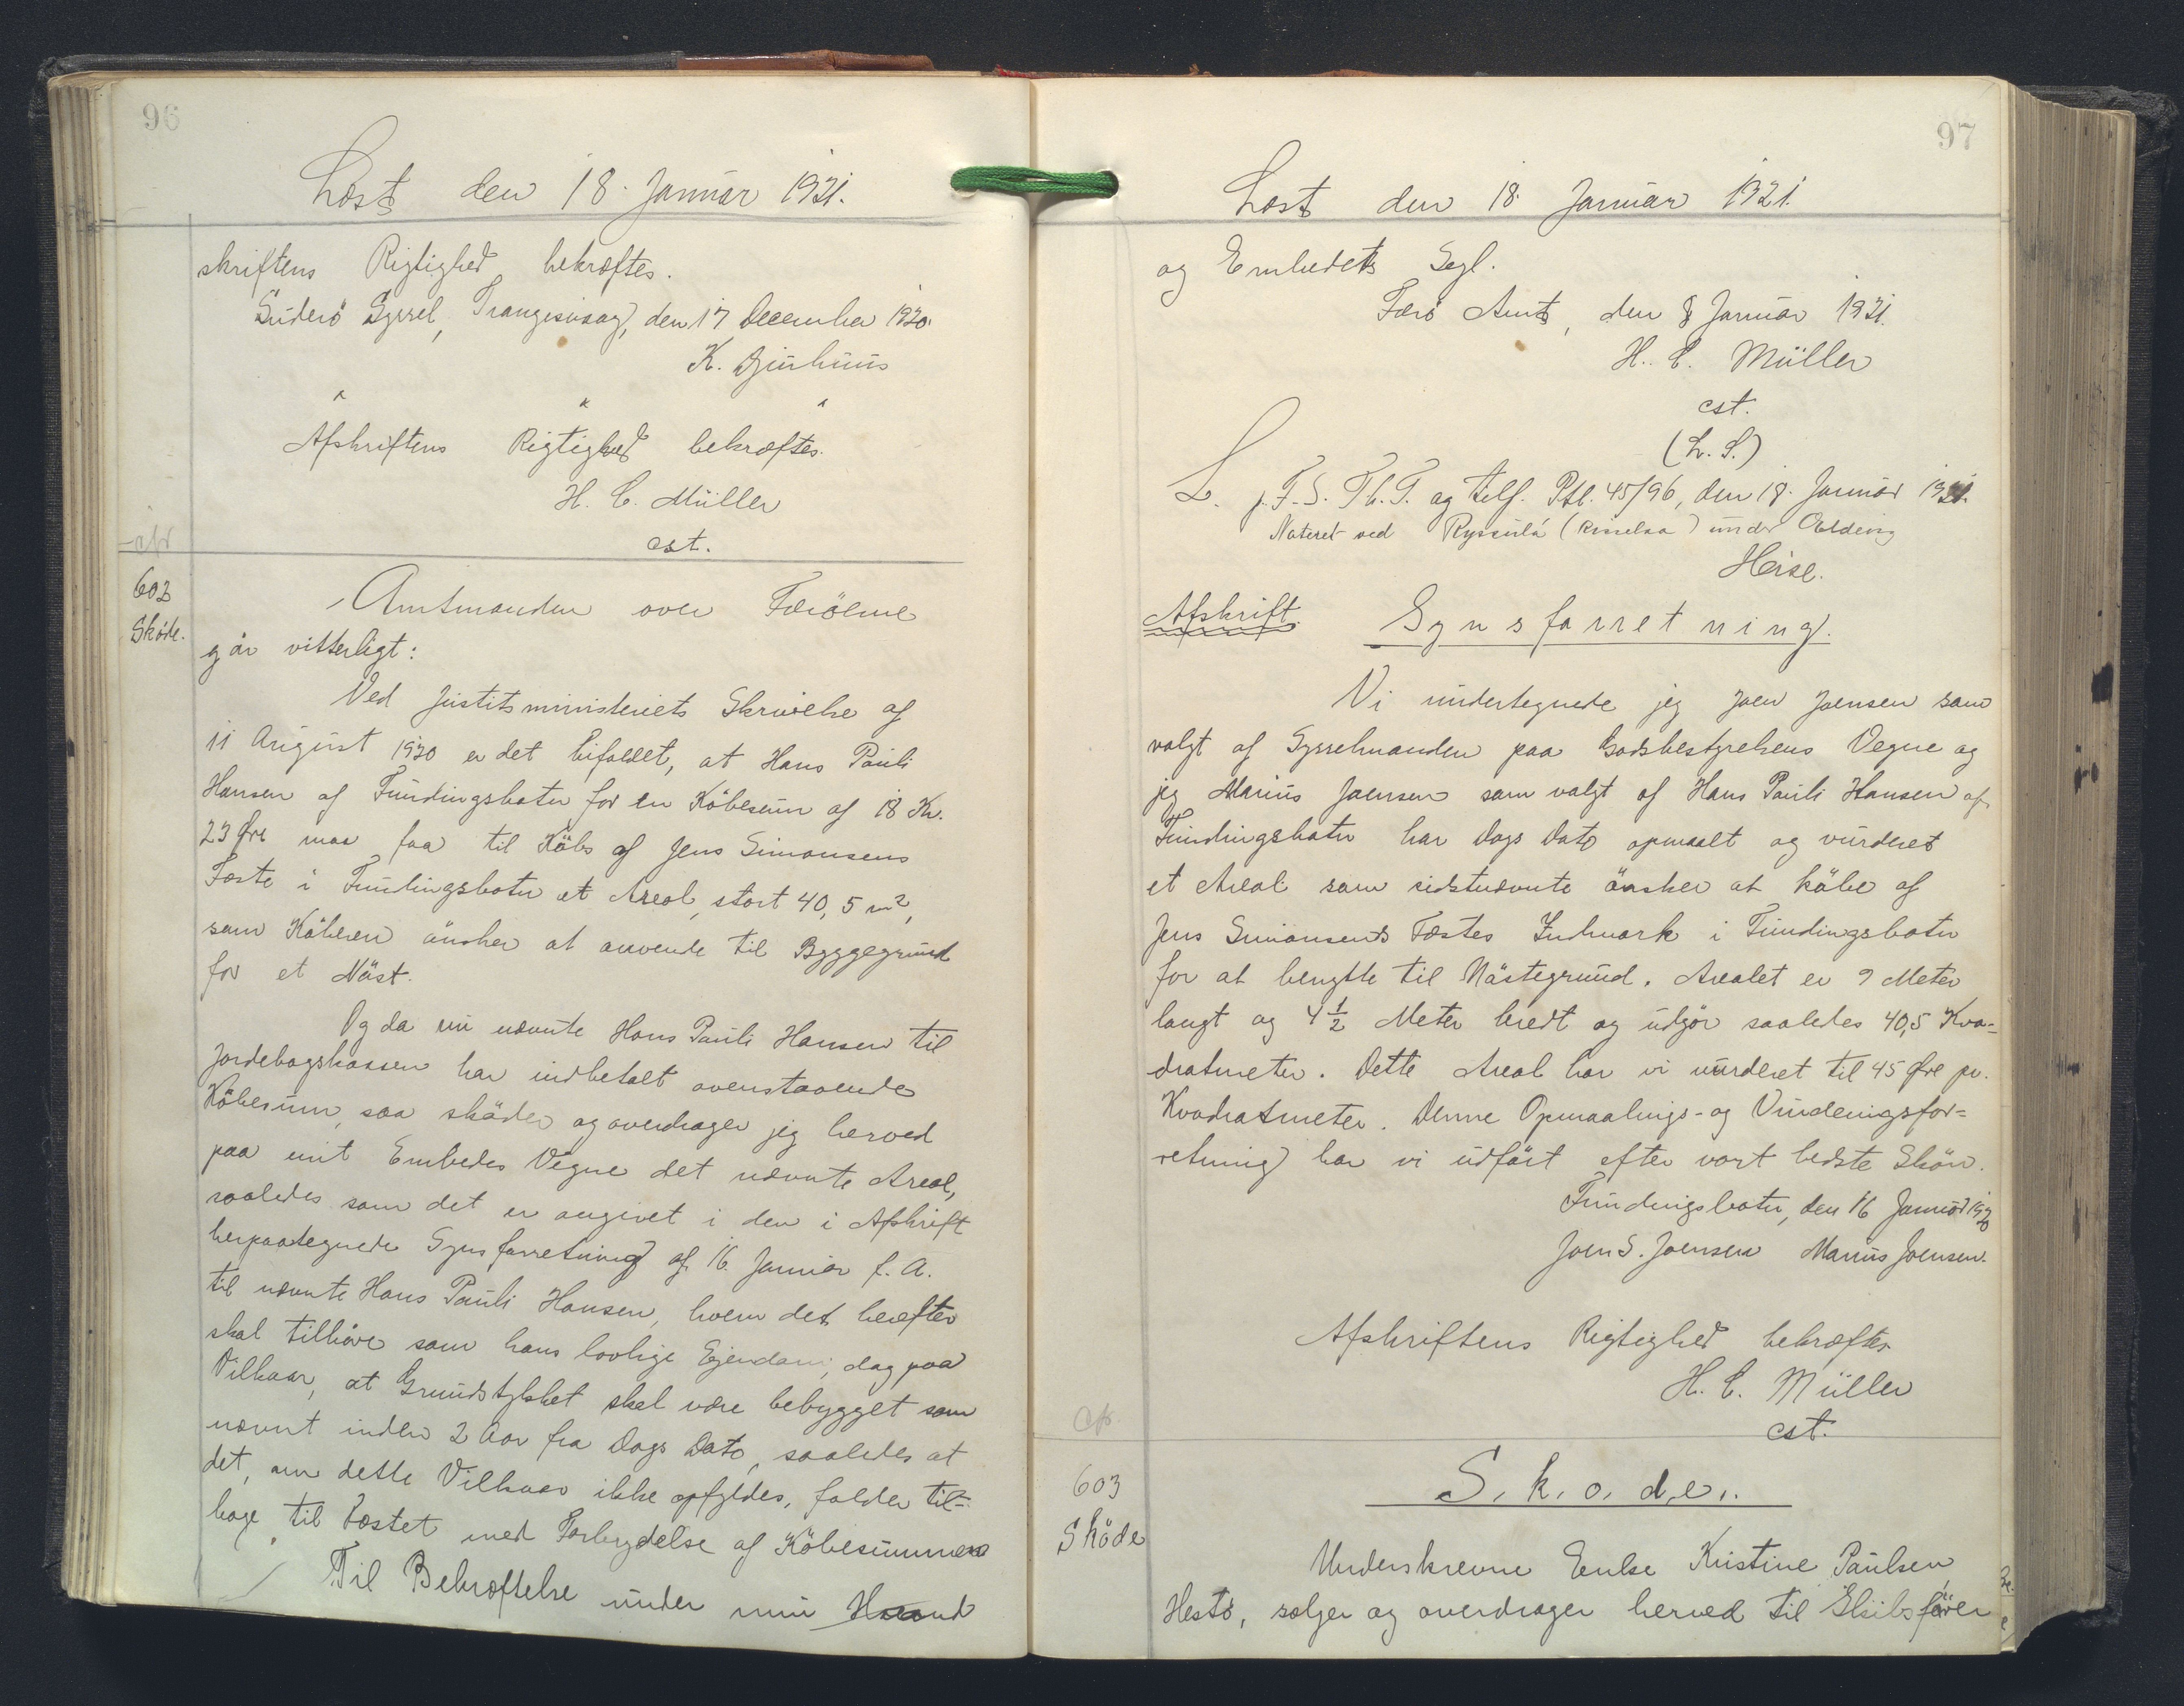 96
Læst den 18. Januar 1921.
skriftens Rigtighed bekræftes.
Suderö Syssel, Trangisvaag, den 17 December 1920.
K. Djurhuus
" " "
Afskriftens Rigtighed bekræftes.
H. C. Müller
cst.
602
Sköde.
Amtmanden over Færöerne
gör vitterligt:
Ved Justitsministeriets Skrivelse af
11 August 1920 er det bifaldet, at Hans Pauli
Hansen af Fundingsbotn for en Köbesum af 18 Kr.
23 Øre maa faa til Köbs af Jens Simonsens
Fæste i Fundingsbotn et Areal, stort 40,5 m²,
som Köberen önsker at anvende til Byggegrund
for et Nöst.
Og da nu nævnte Hans Pauli Hansen til
Jordebogskassen har indbetalt ovenstaaende
Köbesum, saa sköder og overdrager jeg herved
paa mit Embedes Vegne det nævnte Areal,
saaledes som det er angivet i den i Afskrift
herpaategnede Synsforretning af 16. Januar f. A.
til nævnte Hans Pauli Hansen, hvem det herefter
skal tilhöre som hans lovlige Ejendom, dog paa
Vilkaar, at Grundstykket skal være bebygget som
nævnt inden 2 Aar fra Dags Dato, saaledes at
det, om dette Vilkaar ikke opfyldes, falder til-
bage til Fæstet med Forbrydelse af Köbesummen
Til Bekræftelse under min Haand
97
Læst den 18. Januar 1921.
og Embedets Segl.
Færö Amt, den 8 Januar 1921.
H. C. Müller
cst.
(L. S.)
L. p. F. S. Th. T. og tilf. Ptl. 45/96, den 18. Januar 1921.
Noteret ved Ryssulá (Risselaa) under Oldeing
Heise.
Afskrift.
Synsforretning.
Vi undertegnede jeg Joen Joensen som
valgt af Sysselmanden paa Godsbestyrelsens Vegne og
jeg Marius Joensen som valgt af Hans Pauli Hansen af
Fundingsbotn har Dags Dato opmaalt og vurderet
et Areal som sidstnævnte önsker at köbe af
Jens Simonsens Fæstes Indmark i Fundingsbotn
for at benytte til Nöstegrund. Arealet er 9 Meter
langt og 4½ Meter bredt og udgör saaledes 40,5 Kva-
dratmeter. Dette Areal har vi vurderet til 45 Øre pr.
Kvadratmeter. Denne Opmaalings- og Vurderingsfor=
retning har vi udfört efter vort bedste Skön.
Fundingsbotn, den 16 Januar 1920
Joen S. Joensen Marius Joensen.
Afskriftens Rigtighed bekræftes
H. C. Müller
cst.
603
Sköde
S. k. ö. d. e.
Underskrevne Enke Kristine Paulsen,
Hestö, sælger og overdrager herved til Skibsförer